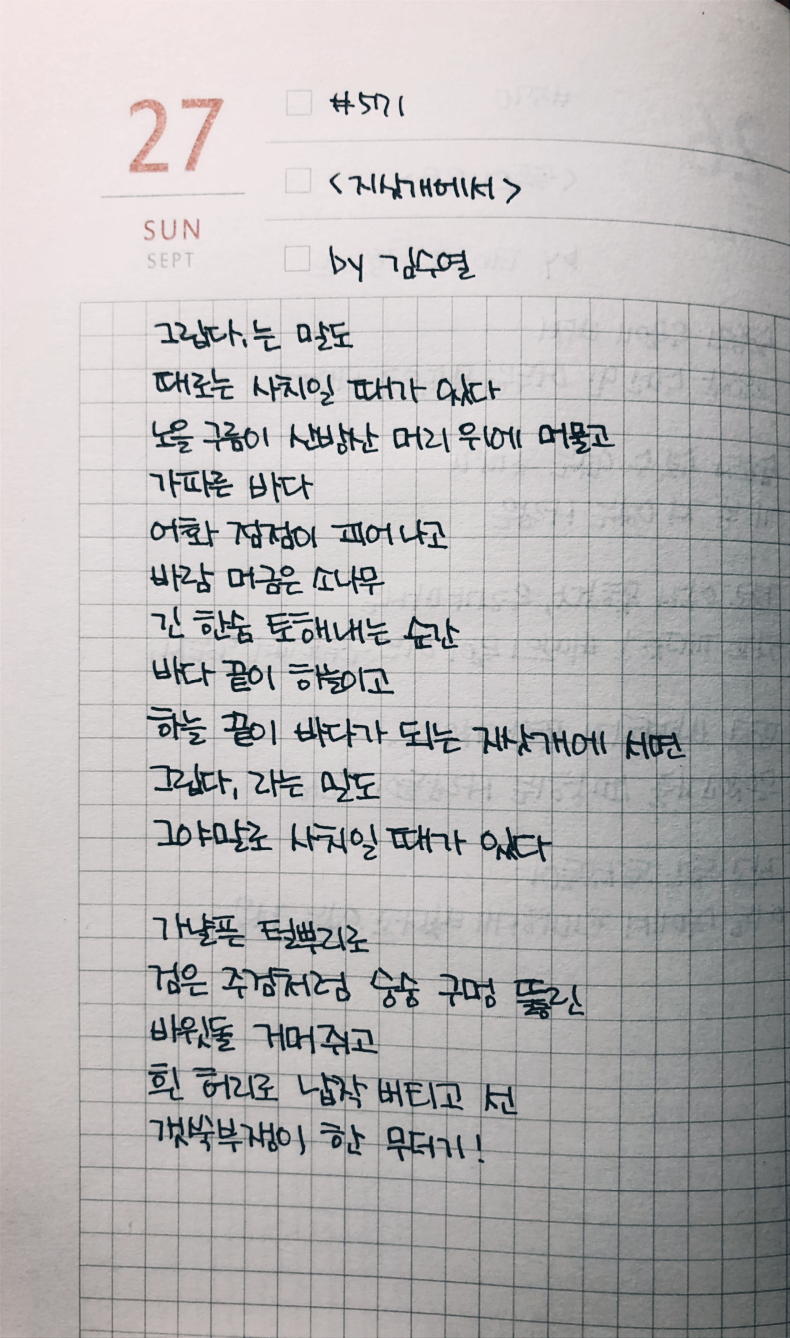 27
SUN
SEPT
#571
<지삿개에서>
by 김수열
그립다,는 말도
때로는 사치일 때가 있다
노을 구름이 산방산 머리 위에 머물고
가파른 바다
어화 점점이 피어나고
바람 머금은 소나무
긴 한숨 토해내는 순간
바다 끝이 하늘이고
하늘 끝이 바다가 되는 지삿개에 서면
그립다, 라는 말도
그야말로 사치일 때가 있다
가냘픈 털뿌리로
검은 주검처럼 숭숭 구멍 뚫린
바윗돌 거머쥐고
휜 허리로 납작 버티고 선
갯쑥부쟁이 한 무더기!